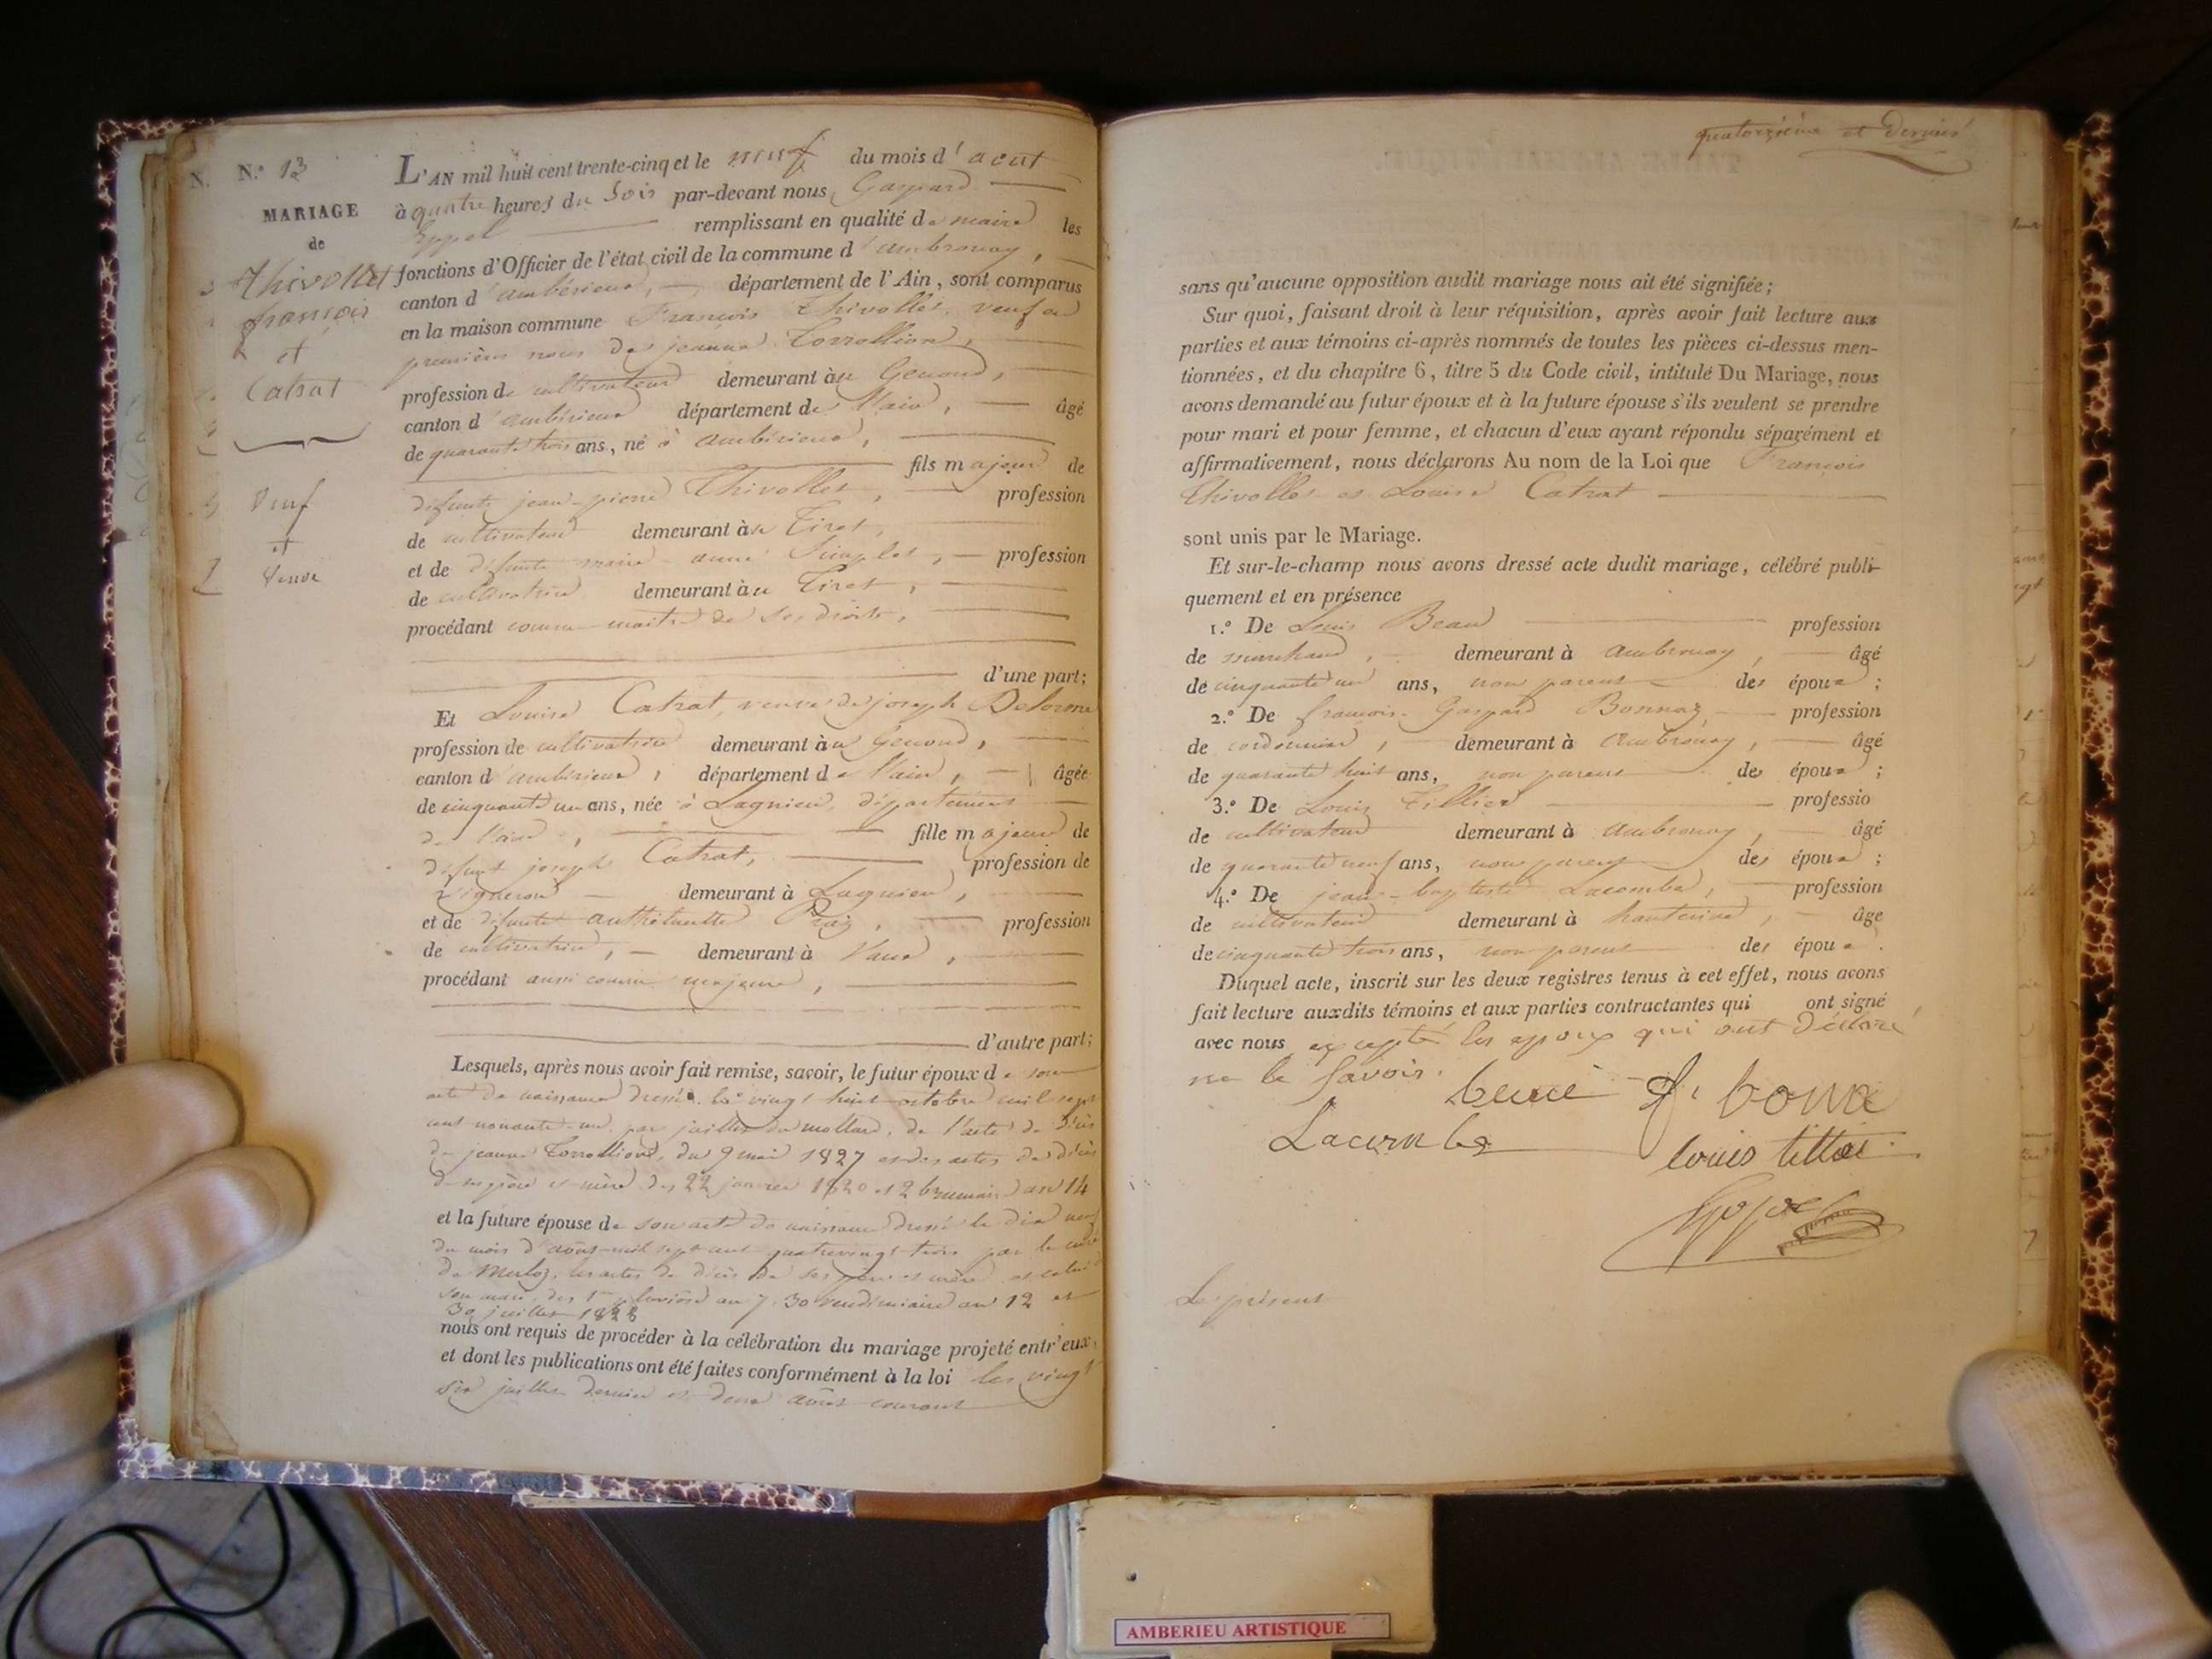 N.
N.º 13
MARIAGE
de
Thivollet
françois
et
Catrat
Veuf
et
Veuve
L'AN mil huit cent trente-cinq et le neuf du mois d'aout
à quatre heures du Soir par-devant nous Gaspard
remplissant en qualité de maire les
fonctions d'Officier de l'état civil de la commune d'ambronay,
canton d'ambérieux, département de l'Ain, sont comparus
en la maison commune François Thivollet, veuf en
premières noces de jeanne
profession de cultivateur demeurant au Genoud,
canton d'ambérieux département de l'ain, âgé
de quarante trois ans, né à ambérieux,
fils majeur de
défunt jean-pierre Thivollet, profession
de cultivateur demeurant au Tiret,
et de défunte marie anne profession
de cultivatrice demeurant au Tiret,
procédant comme maitre de ses droits,
d'une part;
Et Louise Catrat, veuve de joseph Delorme
profession de cultivatrice demeurant au Genoud,
canton d'ambérieux, département de l'ain, âgée
de cinquante un ans, née à Lagnieu, département
de l'ain, fille majeure de
défunt joseph Catrat, profession de
Vigneron demeurant à Lagnieu,
et de défunte profession
de cultivatrice, demeurant à Vaux,
procédant aussi comme majeure,
d'autre part;
Lesquels, après nous avoir fait remise, savoir, le futur époux de son
acte de naissance dressé le vingt huit octobre mil sept
cent nonante un par du mollard, de l'acte de décès
de jeanne du 9 mai 1827 et des actes de décès
de ses père et mère des 22 janvier 1820 et 2 brumaire an 14
et la future épouse de son acte de naissance dressé le dix neuf
du mois d'août mil sept cent quatrevingt trois par le curé
de les actes de décès de ses père et mère et celui
son mari, des 1er pluviôse an 7, 30 vendémiaire an 12 et
30 juillet
nous ont requis de procéder à la célébration du mariage projeté entr'eux,
et dont les publications ont été faites conformément à la loi les vingt
six juillet dernier et deux août courant
quatorzième et Dernier
sans qu'aucune opposition audit mariage nous ait été signifiée;
Sur quoi, faisant droit à leur réquisition, après avoir fait lecture aux
parties et aux témoins ci-après nommés de toutes les pièces ci-dessus men-
tionnées, et du chapitre 6, titre 5 du Code civil, intitulé Du Mariage, nous
avons demandé au futur époux et à la future épouse s'ils veulent se prendre
pour mari et pour femme, et chacun d'eux ayant répondu séparément et
affirmativement, nous déclarons Au nom de la Loi que François
Thivollet et Louise Catrat
sont unis par le Mariage.
Et sur-le-champ nous avons dressé acte dudit mariage, célébré publi-
quement et en présence
1.º De Louis Beau profession
de marchand, demeurant à ambronay, âgé
de cinquante un ans, non parent des époux;
2.º De françois Gaspard Bonnaz, profession
de cordonnier, demeurant à ambronay, âgé
de quarante huit ans, non parent des époux;
3.º De Louis Tillier professio
de cultivateur demeurant à ambronay, âgé
de quarante neuf ans, non parent des époux;
4.º De jean-baptiste Lacombe, profession
de cultivateur demeurant à hauterive, âgé
de cinquante trois ans, non parent des époux.
Duquel acte, inscrit sur les deux registres tenus à cet effet, nous avons
fait lecture auxdits témoins et aux parties contractantes qui ont signé
avec nous excepté les epoux qui ont déclaré
ne le savoir.
Lacombe
louis
Le présent
AMBERIEU ARTISTIQUE